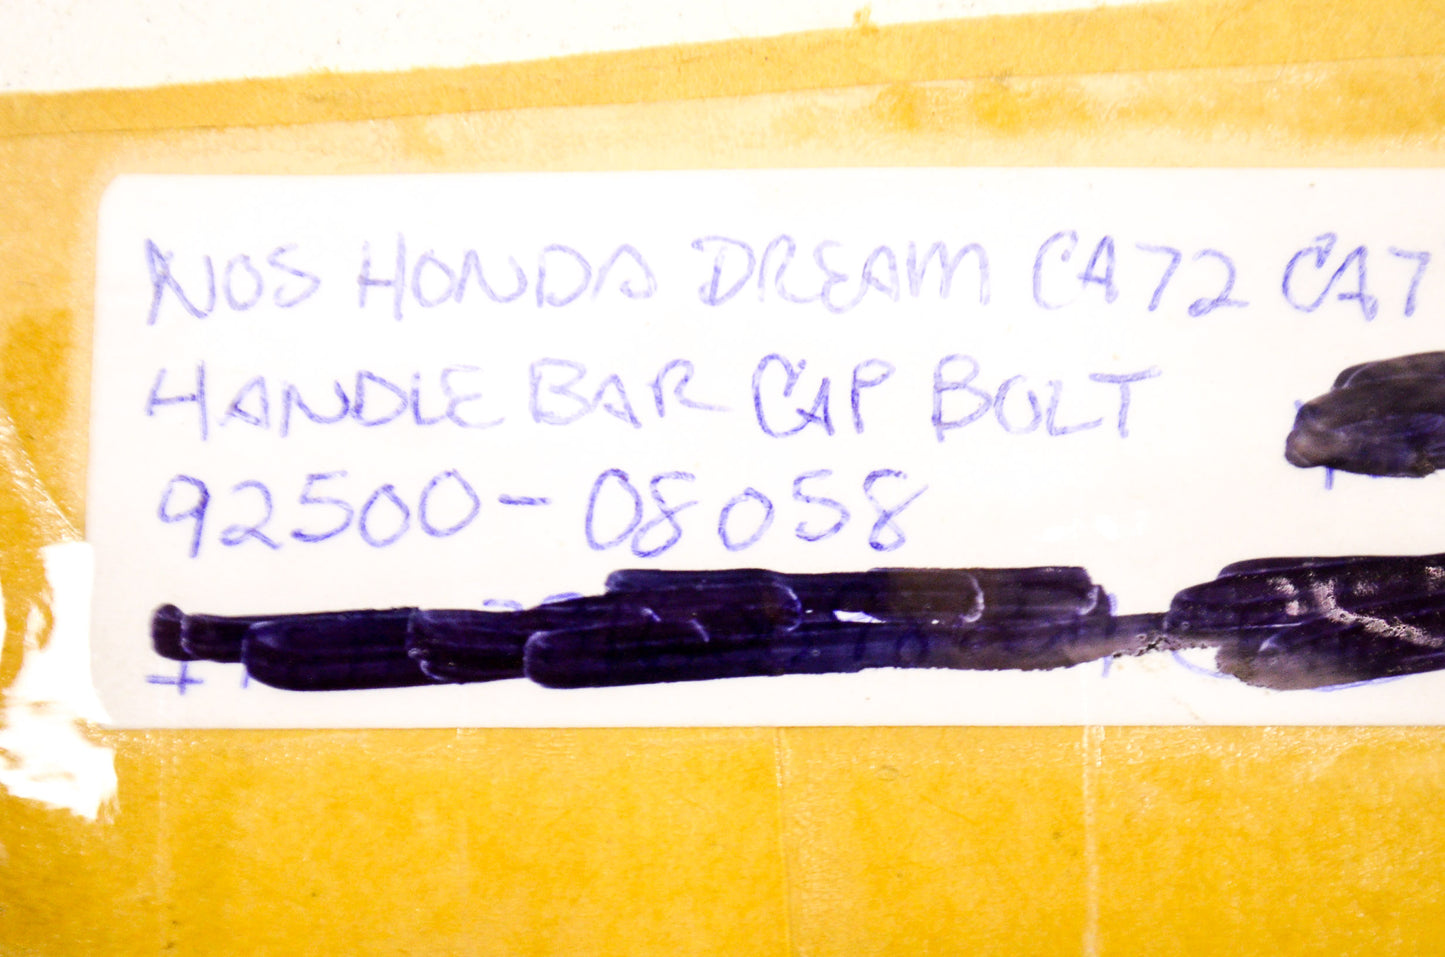 NOS HONDA DREAM CA72 CA7
HANDLE BAR CAP BOLT
92500-08058